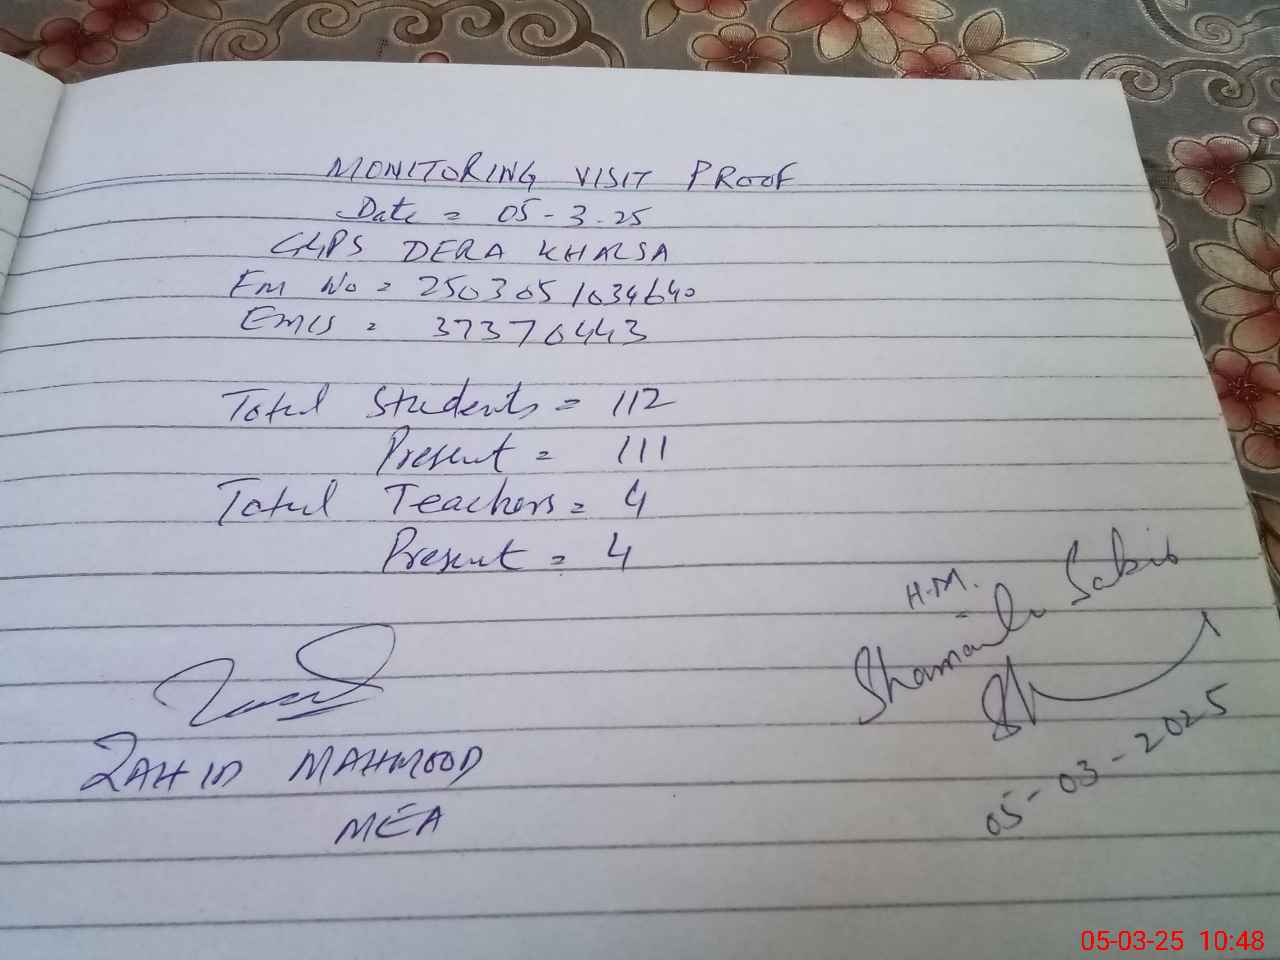 MONITORING VISIT PROOF
Date = 05-3-25
GGPS DERA KHALSA
Em No = 2503051034640
EMIS = 37370443
Total Students = 112
Present = 111
Total Teachers = 4
Present = 4
H.M.
Shamaila Sabir
05-03-2025
ZAHID MAHMOOD
MEA
05-03-25 10:48